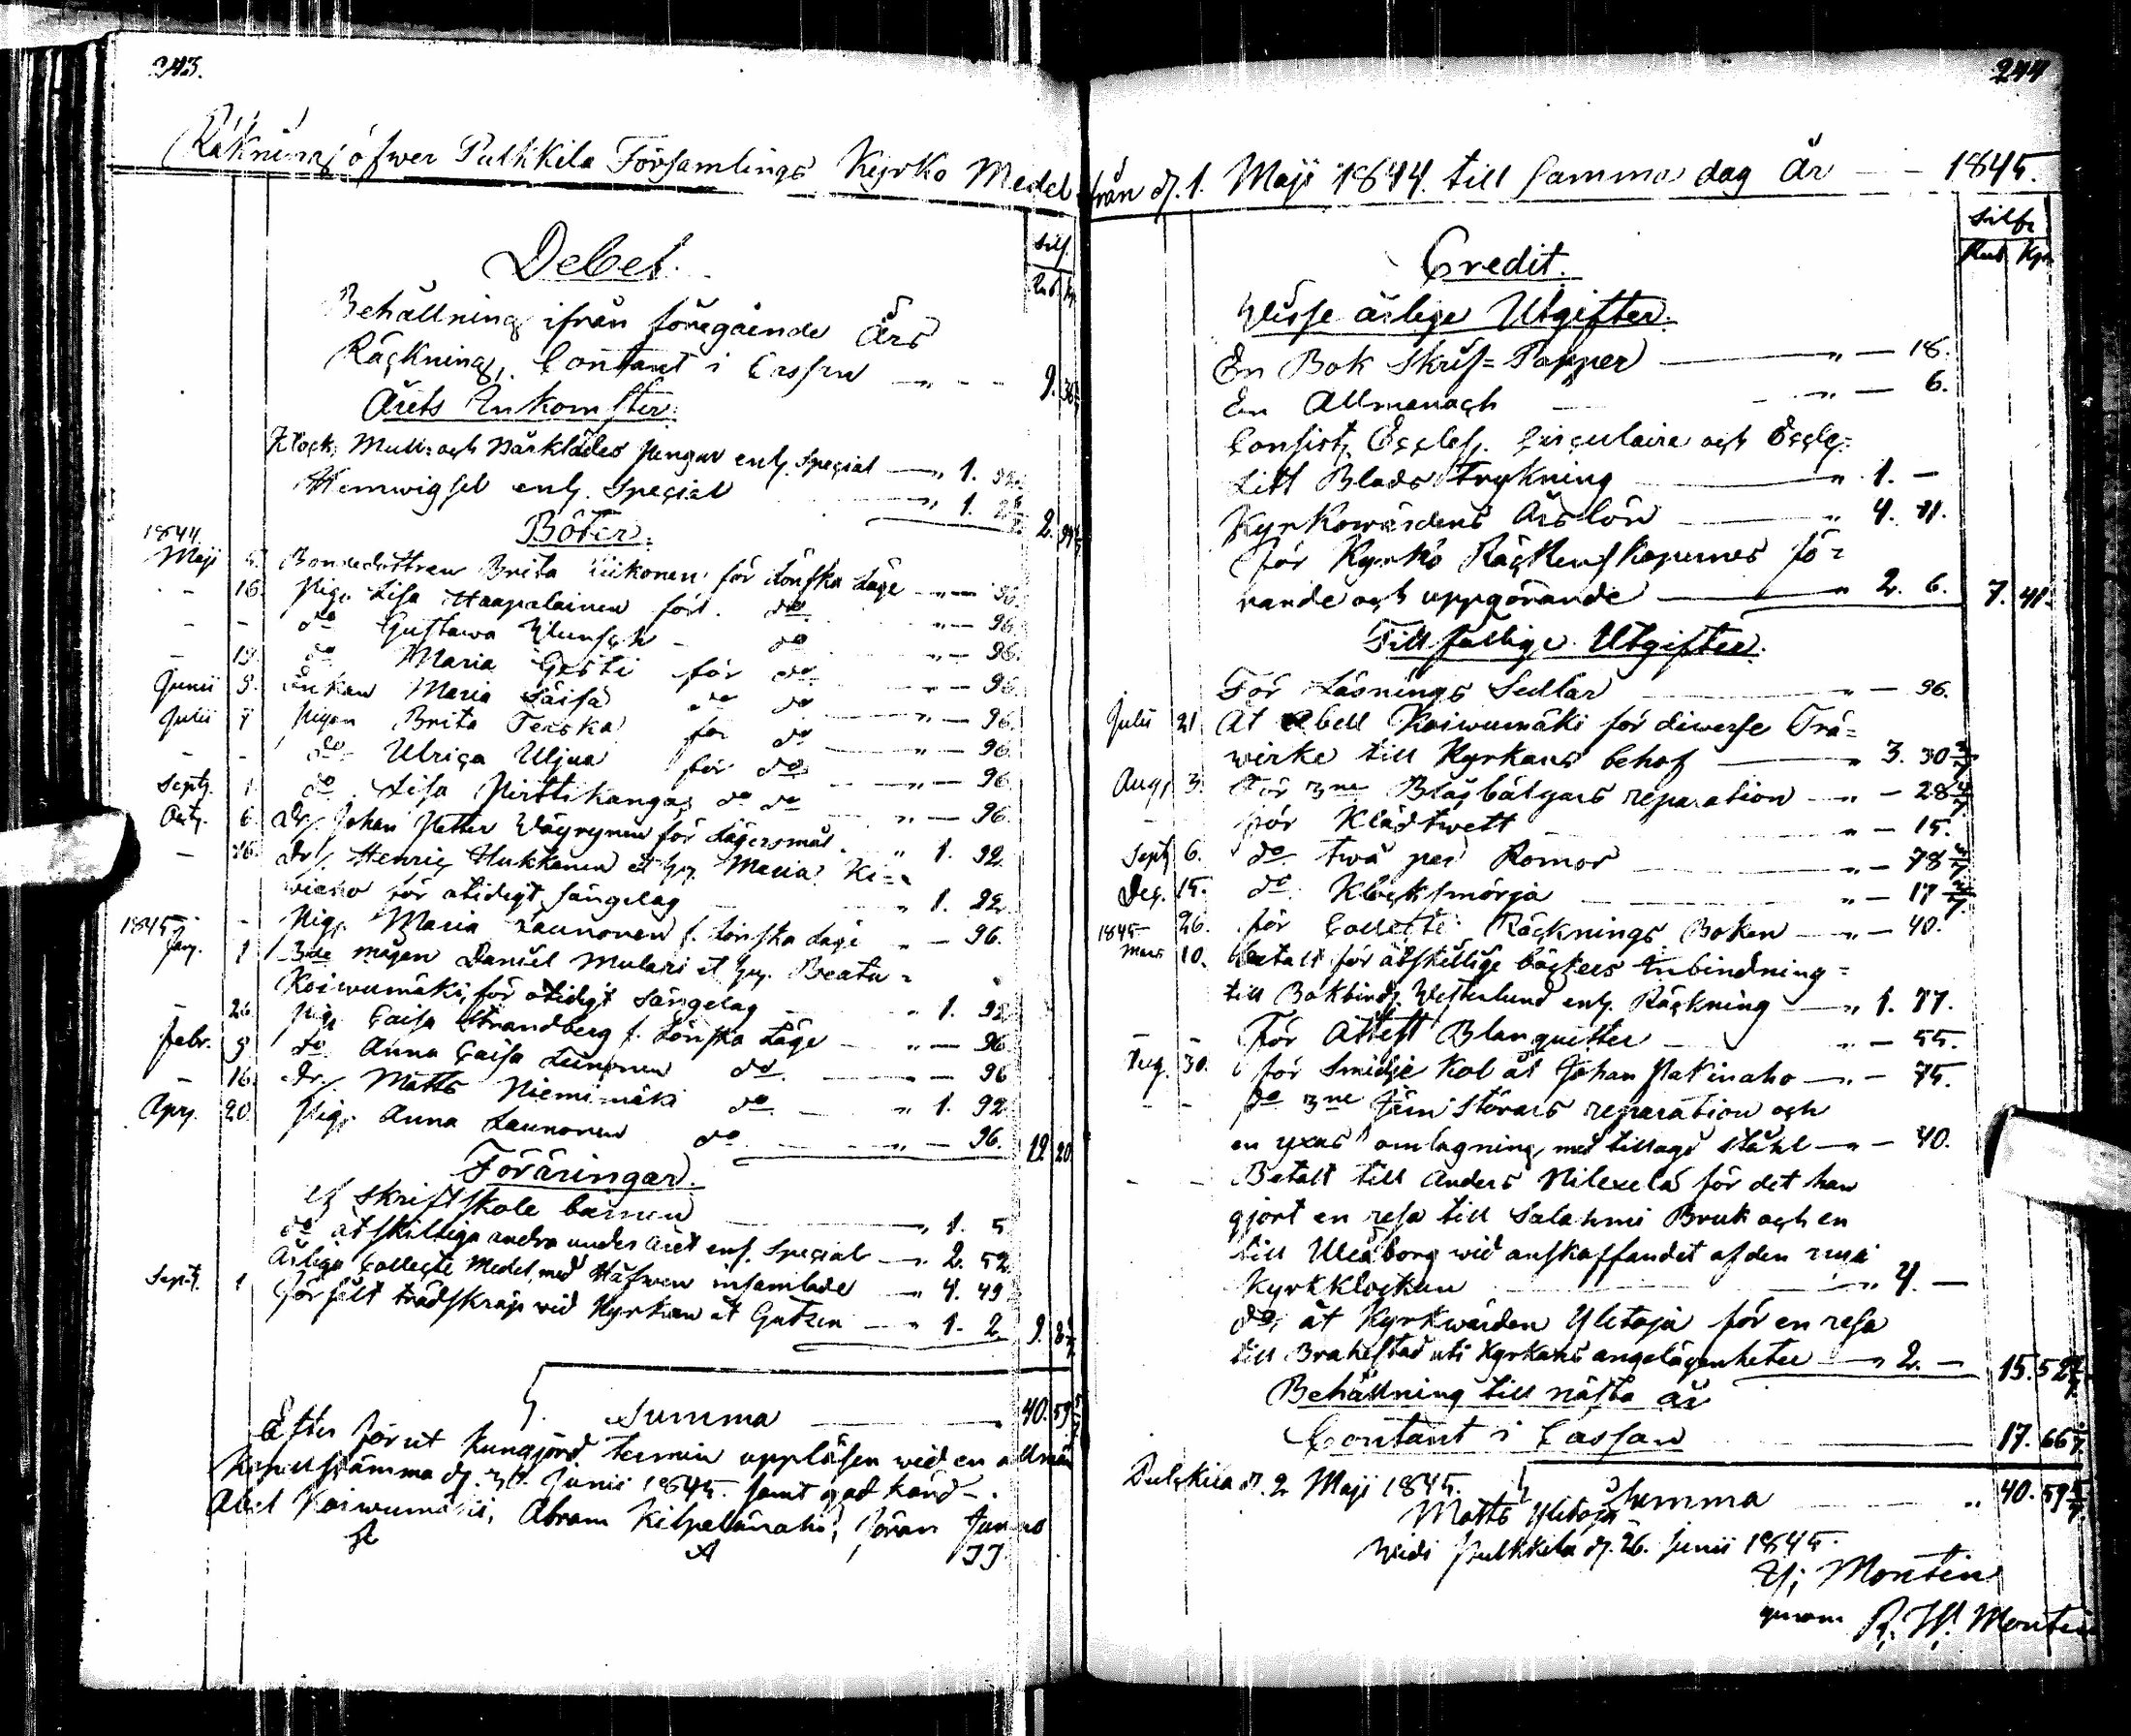 243.
Räkning öfwer Pulkkila Församlings Kyrko Medel
Debet.
Silf.
Behållning ifrån föregående Års
Räckning, Contant i Cassan 9.
Årets Inkomster.
Klock, Mull- och Bårklädes pengar enl. Special 1.
Hemwigsel enl. Special 1.
Böter.
2.
1844.
Maji 5. Bondedottren Brita Iikonen för Lönska Läge 96.
16. Pig. Lisa Haapalainen förd. do 96.
do Gustawa Wunsch do 96.
19. do Maria Gesti för do 96.
Junii 9. Enkan Maria do do 96.
Julii 7 Pigan Brita Terska för do 96.
do Ulrica Uljua för do 96.
Sept. 1. do Lisa Pirttikangas do do 96.
Octr. 6. Dr. Johan Petter Wäyrynen för Lägersmål 1. 92.
16. Dr. Henric Hukkanen et Maria Ki=
wiaho för otidigt sängelag 1. 92.
Pig. Maria Launonen f. Lönska Läge 96.
1845
Jan. 1 Bde mågen Daniel Mulari et Beata
Koiwumäki, för otidigt Sängelag 1. 92.
26. Pig. Caisa Strandberg f. Lönska Läge 96
Febr. 9 do Anna Caisa Leinonen do 96
16. Dr. Matts Niemimäki do 1. 92
Apr. 20. Pig. Anna Launonen do 96. 19 20
Föräringar.
Af Skriftskole barnen 1. 5
do åtskilliga andra under året enl. Special 2. 52
Årlige Collecte Medel, med Håfwen insamlade 4. 49
Sept. 1 För sålt trädskräp wid Kyrkan åt Gutzén 1. 2. 9.
Summa 40. 59 5/7
Efter förut kungjord termin uppläsen wid en allmän
Kyrkostämma d. Junii 1845. samt godkänd.
Abel Koiwumäki, Abram Kilpelänaho, Göran Junno
JJ
244
från d. 1. Maji 1844. till samma dag År 1845.
Silfr
Rub Kop
Credit.
Wisse årlige Utgifter.
En Bok Skrif=Papper 18.
En Allmanach 6.
Consist. Eccles. Circulaire och Eccle=
Litt Blads tryckning 1. -
Kyrkowärdens Årslön 4. 11.
för Kyrko Räckenskapernes fö=
rande och uppgörande 2. 6. 7. 41.
Tillfällige Utgifter.
För Läsnings Sedlar 96.
Julii 21 At Abell Koiwumäki för diwerse Trä=
wirke till Kyrkans behof 3. 30 2/7
Aug. 3. För 3ne Blåsbälgars reparation 28 4/7
för Klädtwett 15.
Sept 6. do twå par Romor 78 4/7
Dec. 15. do Klocksmörja 17 1/7
26. för Collecte Räcknings Boken 40.
1845
Mars 10. betalt för åtskillige böckers Inbindning=
till Bokbind. Westerlund enl. Räckning 1. 77.
För Attest Blanquetter 55.
Aug. 30. för Smidje Kol åt Johan Pakinaho 75.
do 3ne Jern Störars reparation och
en yxas omlagning, med tillagd stahl 40.
Betalt till Anders Nilexelä för det han
gjort en resa till Salahmi Bruk och en
till Uleåborg wid anskaffandet af den nya
Kyrkklockan 4. -
do, åt Kyrkwärden Ylitaja för en resa
till Brahestad uti Kyrkans angelägenheter 2. - 15. 52
Behållning till nästa år
Contant i Cassan 17. 66
Pulckila d. 2 Maji 1845. Summa 40. 59 5/7
Matts Ylitaja
Widi Pulkkila d. 26. Junii 1845.
Montin
genom R. W. Montin